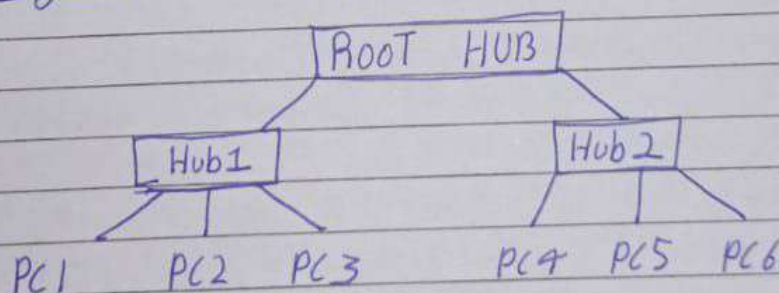 ROOT HUB
Hub1 Hub2
PC1 PC2 PC3 PC4 PC5 PC6